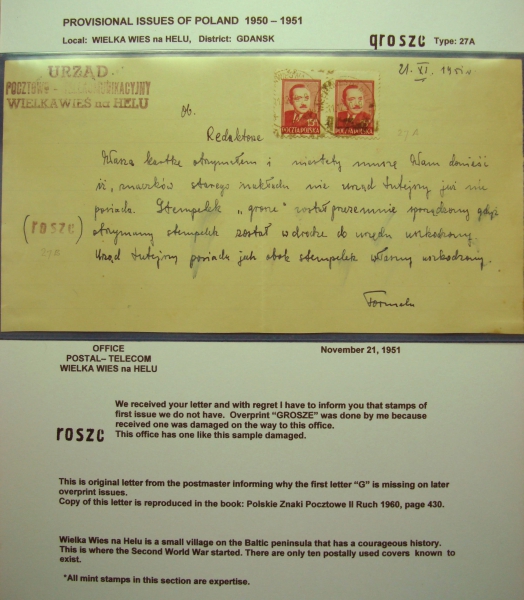 PROVISIONAL ISSUES OF POLAND 1950 – 1951
Local: WIELKA WIES na HELU, District: GDANSK
grosze Type: 27A
URZĄD
POCZTOWO - TELEKOMUNIKACYJNY
WIELKA WIEŚ na HELU
21. XI. 1951 r.
POCZTA POLSKA
POCZTA POLSKA
Ob.
27A
Redaktorze
Waszą kartkę otrzymałem i niestety muszę Wam donieść
iż, znaczków starego nakładu nie urząd tutejszy już nie
posiada. Stempelek „grosze" został przezemnie sporządzony gdyż
(rosze)
otrzymany stempelek został w drodze do urzędu uszkodzony.
27A
Urząd tutejszy posiada jak obok stempelek własny uszkodzony.
OFFICE
POSTAL– TELECOM
WIELKA WIES na HELU
November 21, 1951
We received your letter and with regret I have to inform you that stamps of
first issue we do not have. Overprint “GROSZE” was done by me because
received one was damaged on the way to this office.
This office has one like this sample damaged.
rosze
This is original letter from the postmaster informing why the first letter “G” is missing on later
overprint issues.
Copy of this letter is reproduced in the book: Polskie Znaki Pocztowe II Ruch 1960, page 430.
Wielka Wies na Helu is a small village on the Baltic peninsula that has a courageous history.
This is where the Second World War started. There are only ten postally used covers known to
exist.
*All mint stamps in this section are expertise.